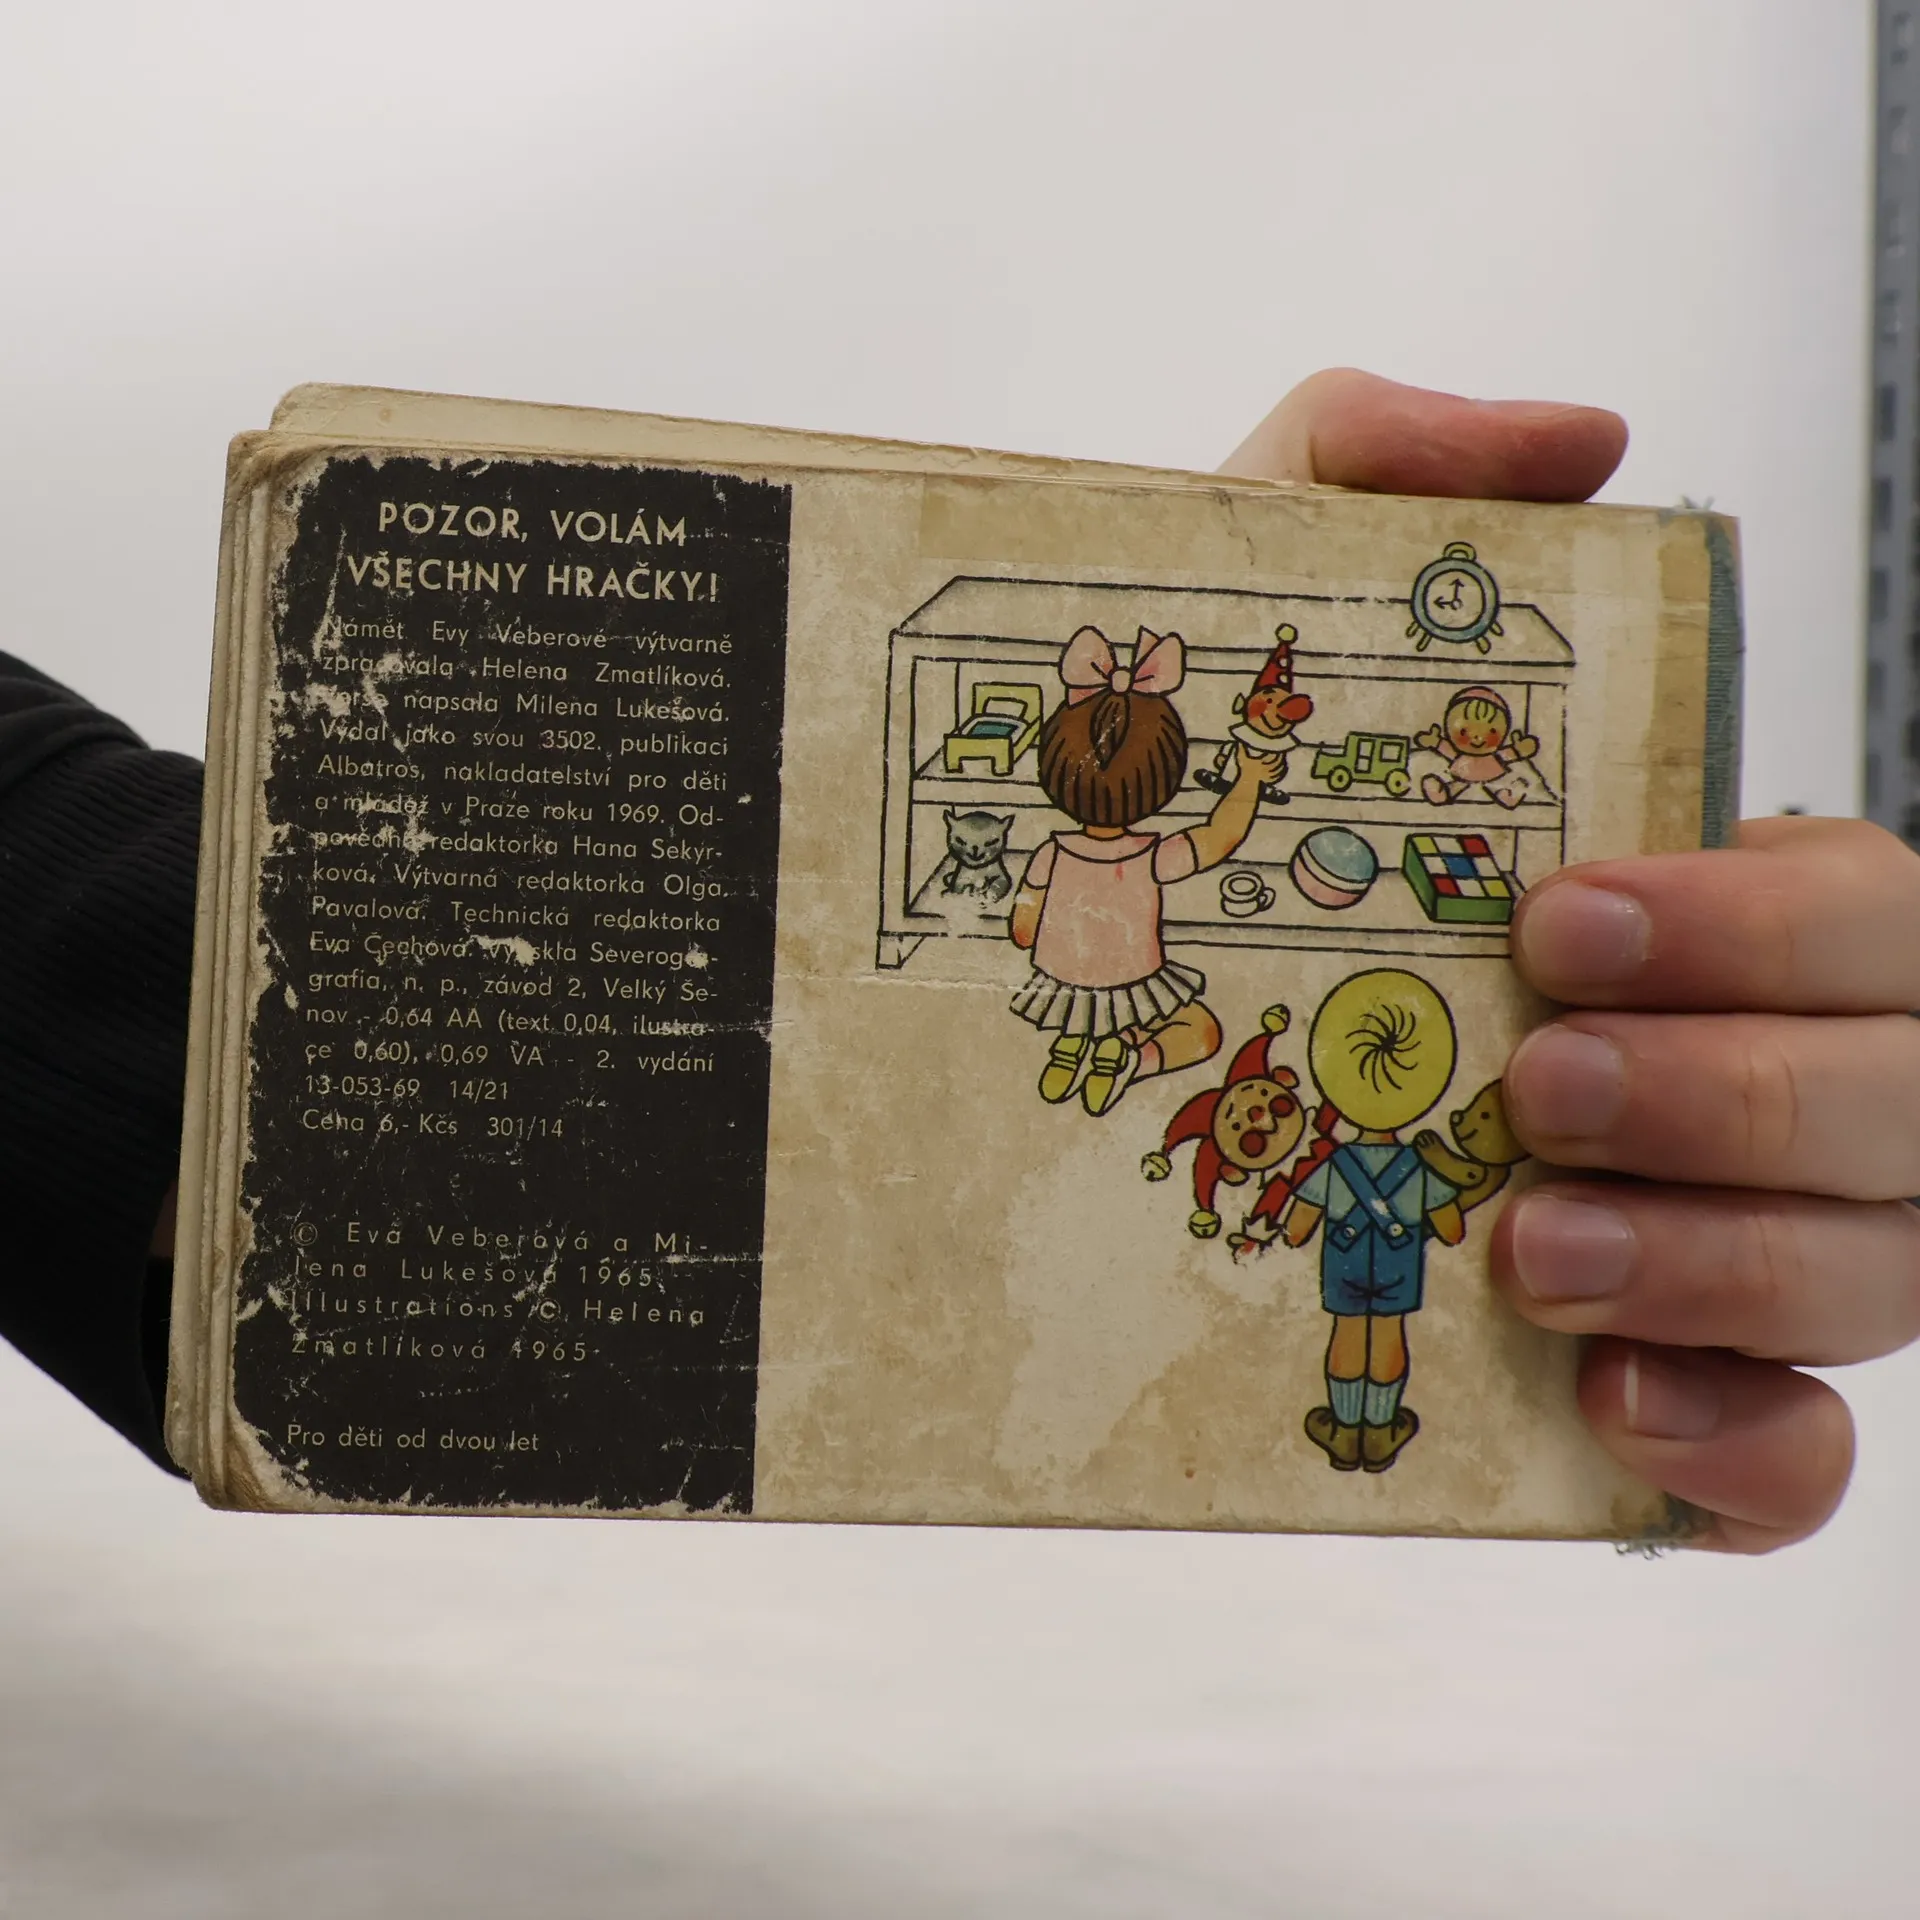 POZOR, VOLÁM
VŠECHNY HRAČKY!
Námět Evy Veberové výtvarně
zpracovala Helena Zmatlíková.
napsala Milena Lukešová.
Vydal jako svou 3502. publikaci
Albatros, nakladatelství pro děti
a mládež v Praze roku 1969. Od-
povědná redaktorka Hana Sekyr-
ková. Výtvarná redaktorka Olga
Pavalová. Technická redaktorka
Eva Čechová. Vytiskla Severogra-
grafia, n. p., závod 2, Velký Še-
nov - 0,64 AA (text 0,04, ilustra-
ce 0,60), 0,69 VA - 2. vydání
13-053-69 14/21
Cena 6,- Kčs 301/14
© Eva Veberová a Mi-
lena Lukešová 1965
Illustrations © Helena
Zmatlíková 1965
Pro děti od dvou let